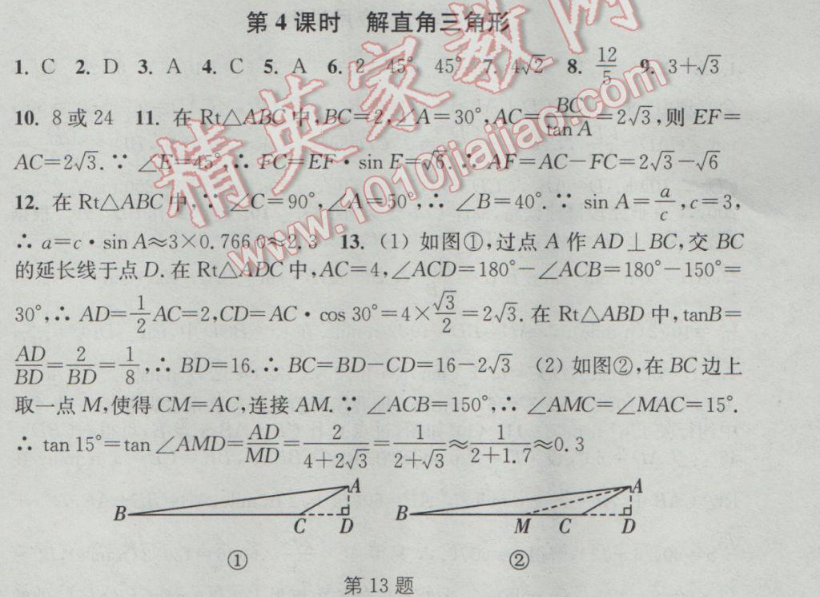 第4课时 解直角三角形
1. C 2. D 3. A 4. C 5. A 6. 2 45° 45° 7. 4√2 8. 12/5 9. 3+√3
10. 8或24 11. 在Rt△ABC中,BC=2,∠A=30°,AC=BC/tan A=2√3,则EF=
AC=2√3.∵ ∠E=45°,∴ FC=EF·sin E=√6.∴ AF=AC-FC=2√3-√6
12. 在Rt△ABC中,∵ ∠C=90°,∠A=50°,∴ ∠B=40°.∵ sin A=a/c,c=3,
∴ a=c·sin A≈3×0.7660≈2.3 13. (1) 如图①,过点A作AD⊥BC,交BC
的延长线于点D.在Rt△ADC中,AC=4,∠ACD=180°-∠ACB=180°-150°=
30°,∴ AD=1/2AC=2,CD=AC·cos 30°=4×√3/2=2√3.在Rt△ABD中,tanB=
AD/BD=2/BD=1/8,∴ BD=16.∴ BC=BD-CD=16-2√3 (2) 如图②,在BC边上
取一点M,使得CM=AC,连接AM.∵ ∠ACB=150°,∴ ∠AMC=∠MAC=15°.
∴ tan 15°=tan∠AMD=AD/MD=2/(4+2√3)=1/(2+√3)≈1/(2+1.7)≈0.3
A A
B C D B M C D
① ②
第13题
精英家教网
www.1010jiajiao.com